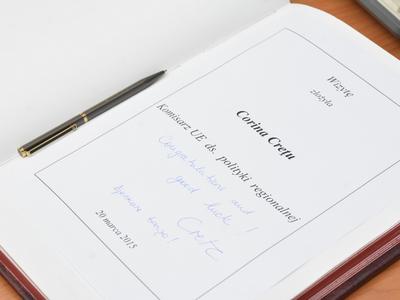 Wizytę
złożyła
Corina Crețu
Komisarz UE ds. polityki regionalnej
Congratulations and
good luck!
Crețu
20 marca 2015